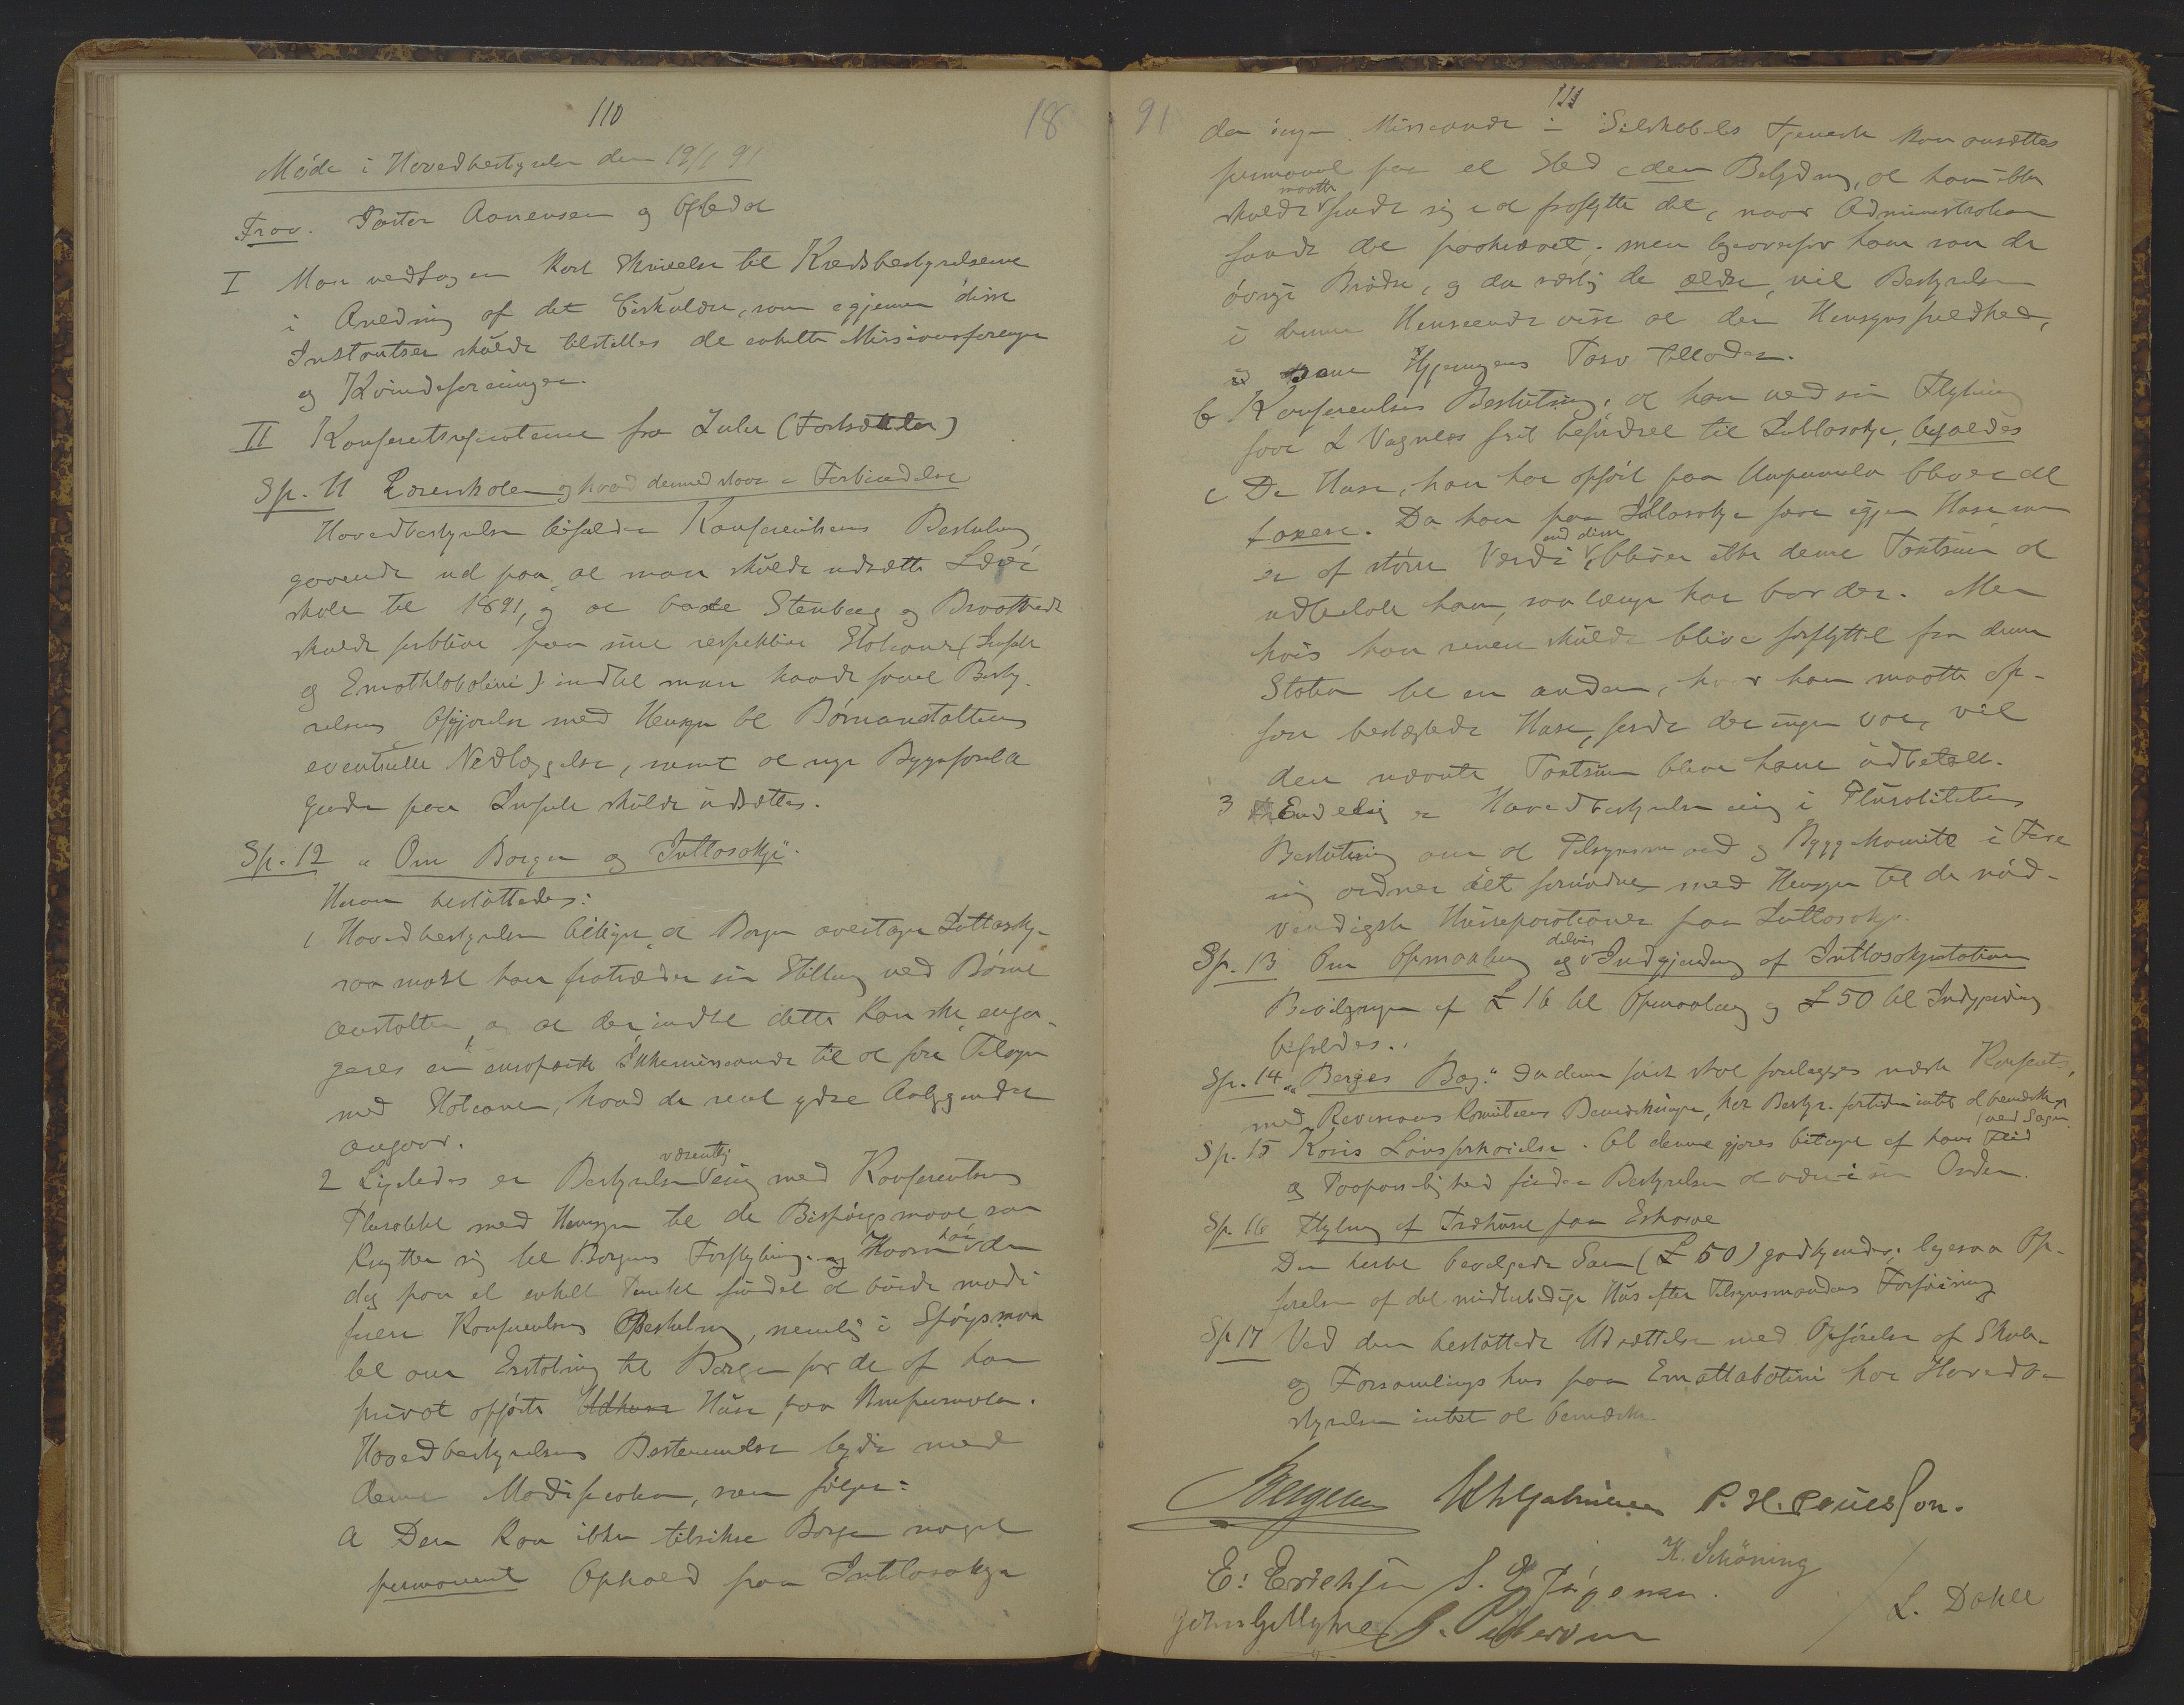 110
18
Møde i Hovedbestyrelsen den 19/1 91
Frav. Pastor Aanensen og Oftedal
I Man vedtog en kort Skrivelse til Kredsbestyrelserne
i Anledning af det Cirkulære, som igjennem disse
Instantser skulde tilstilles de enkelte Missionsforeninger
og Kvindeforeninger.
II Konferentsreferaterne fra Zulu (Fortsættes)
Sp. 11 Lærerskolen og hvad dermed staar i Forbindelse
Hovedbestyrelsen bifalder Konferentsens Beslutning
gaaende ud paa, at man skulde udsætte Lærer
skolen til 1891, og at baade Stenberg og Braatvedt
skulde forblive paa sine respektive Stationer (Inhle
og Emathlabatini) indtil man havde faaet Besty-
relsens Afgjørelse med Hensyn til Børneanstaltens
eventuelle Nedlæggelse, samt at nye Byggefore-
gender paa skulde udsættes.
Sp. 12 „Om Borgen og Intlosokje".
Herom besluttedes:
1 Hovedbestyrelsen billiger, at Borgen overtager Intlosokje
saa snart han fratræder sin Stilling ved Børne
anstalten, og at der indtil dette kan ske, enga-
geres en europæisk Ikkemissionær til at føre Tilsyn
med Stationen, hvad de rent ydre Anliggender
angaar.
2 Ligeledes er Bestyrelsen væsentlig enig med Konferentsens
Pluralitet med Hensyn til de Bispørgsmaal som
knytter sig til Borgens Forflytning, og har den
dog paa et enkelt Punkt fundet at burde modi
ficere Konferentsens Beslutning, nemlig i Spørgsmaa
let om Erstatning til Borgen for de af ham
privat opførte Udhuse Huse paa Umpumulo.
Hovedbestyrelsens Bestemmelse lyder med
denne Modifikation, som følger:
a Den kan ikke tilsikre Borgen noget
permanent Ophold paa Intlosokje
91
111
da ingen Missionær i Selskabets Tjeneste kan ansættes
permanent paa et Sted i den Betydning, at han ikke
skulde maatte finde sig i at fraflytte det, naar Administrationen
fandt det paakrævet; men ligeoverfor ham som de
øvrige Brødre, og da særlig de ældre, vil Bestyrelsen
i denne Henseende vise al den Hensynsfuldhed,
som Gjerningens Tarv tillader.
b Konferentsens Beslutning, at han ved sin Flytning
faar 2 Vognlæs frit befordret til Intlosokje, bifaldes
c De Huse, han har opført paa Umpumulo bliver at
taxere. Da han paa Intlosokje faar igjen Huse som
er af større Værdi end disse, bliver ikke denne Taxtsum at
udbetale ham, saalænge han bor der. Men
hvis han senere skulde blive forflyttet fra denne
Station til en anden, hvor han maatte op-
føre beslægtede Huse, fordi der ingen var, vil
den nævnte Taxtsum blive ham udbetalt.
3 Endelig er Hovedbestyrelsen enig i Pluralitetens
Beslutning om at Tilsynsmand og Byggekomite i Fore
ning ordner det fornødne med Hensyn til de nød-
vendigste Husreparationer paa Intlosokje.
Sp. 13 Om Opmaaling og delvis Indgjerding af Intlosokjestationen
Bevilgningen af £ 16 til Opmaaling og £ 50 til Indgjerding
bifaldes.
Sp. 14 „Berges Bog." Da denne først skal forelægges næste Konferents,
med Revisions Komiteens Bemærkninger, har Bestyr. fortiden intet at bemærke
ved Sagen
Sp. 15 Lønsforhøielse. At denne gjøres betinget af hans Flid
og Paapasselighed finder Bestyrelsen at være i sin Orden.
Sp. 16 Flytning af Træhuset paa Eshowe
Den hertil bevilgede Sum (£ 50) godkjendes; ligesaa Op-
førelsen af det midlertidige Hus efter Tilsynsmandens Forføining
Sp 17 Ved den besluttede Udsættelse med Opførelse af Skole-
og Forsamlingshus paa Emattabatini har Hovedbe
styrelsen intet at bemærke.
P. H. Poulsson.
K. Schöning
E. Erichsen S. E. Jørgensen.
L. Dahle